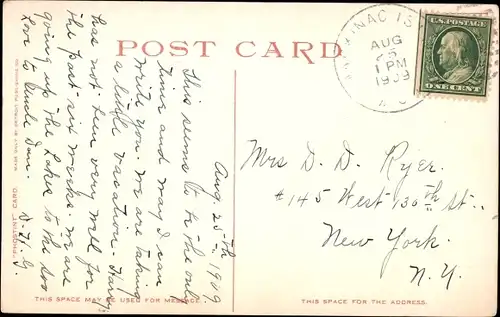 POST CARD
MACKINAC IS
AUG
25
1 PM
1909
U.S. POSTAGE
ONE CENT
Aug 25th 1909
This seems to be the only
time and way I can
write you. We are taking
a little vacation. Harry
has not been very well for
the past six weeks. We are
going up the Lakes to the Soo
Love to Uncle Dan. D.H.G.
Mrs D. D. Ryer.
#145 West 130th St.
New York.
N.Y.
"PHOSTINT" CARD.
THIS SPACE MAY BE USED FOR MESSAGE.
THIS SPACE IS FOR THE ADDRESS.